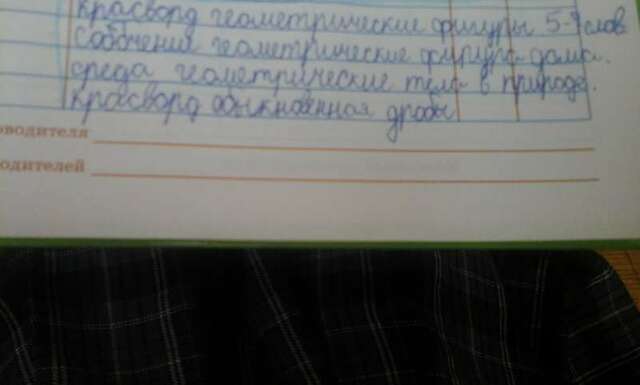 красворд геометрические фигуры 5-9 слов
Сообчения геометрические фигура дома.
среда геометрические тела в природе.
красворд обыкновенная дробы
оводителя
одителей